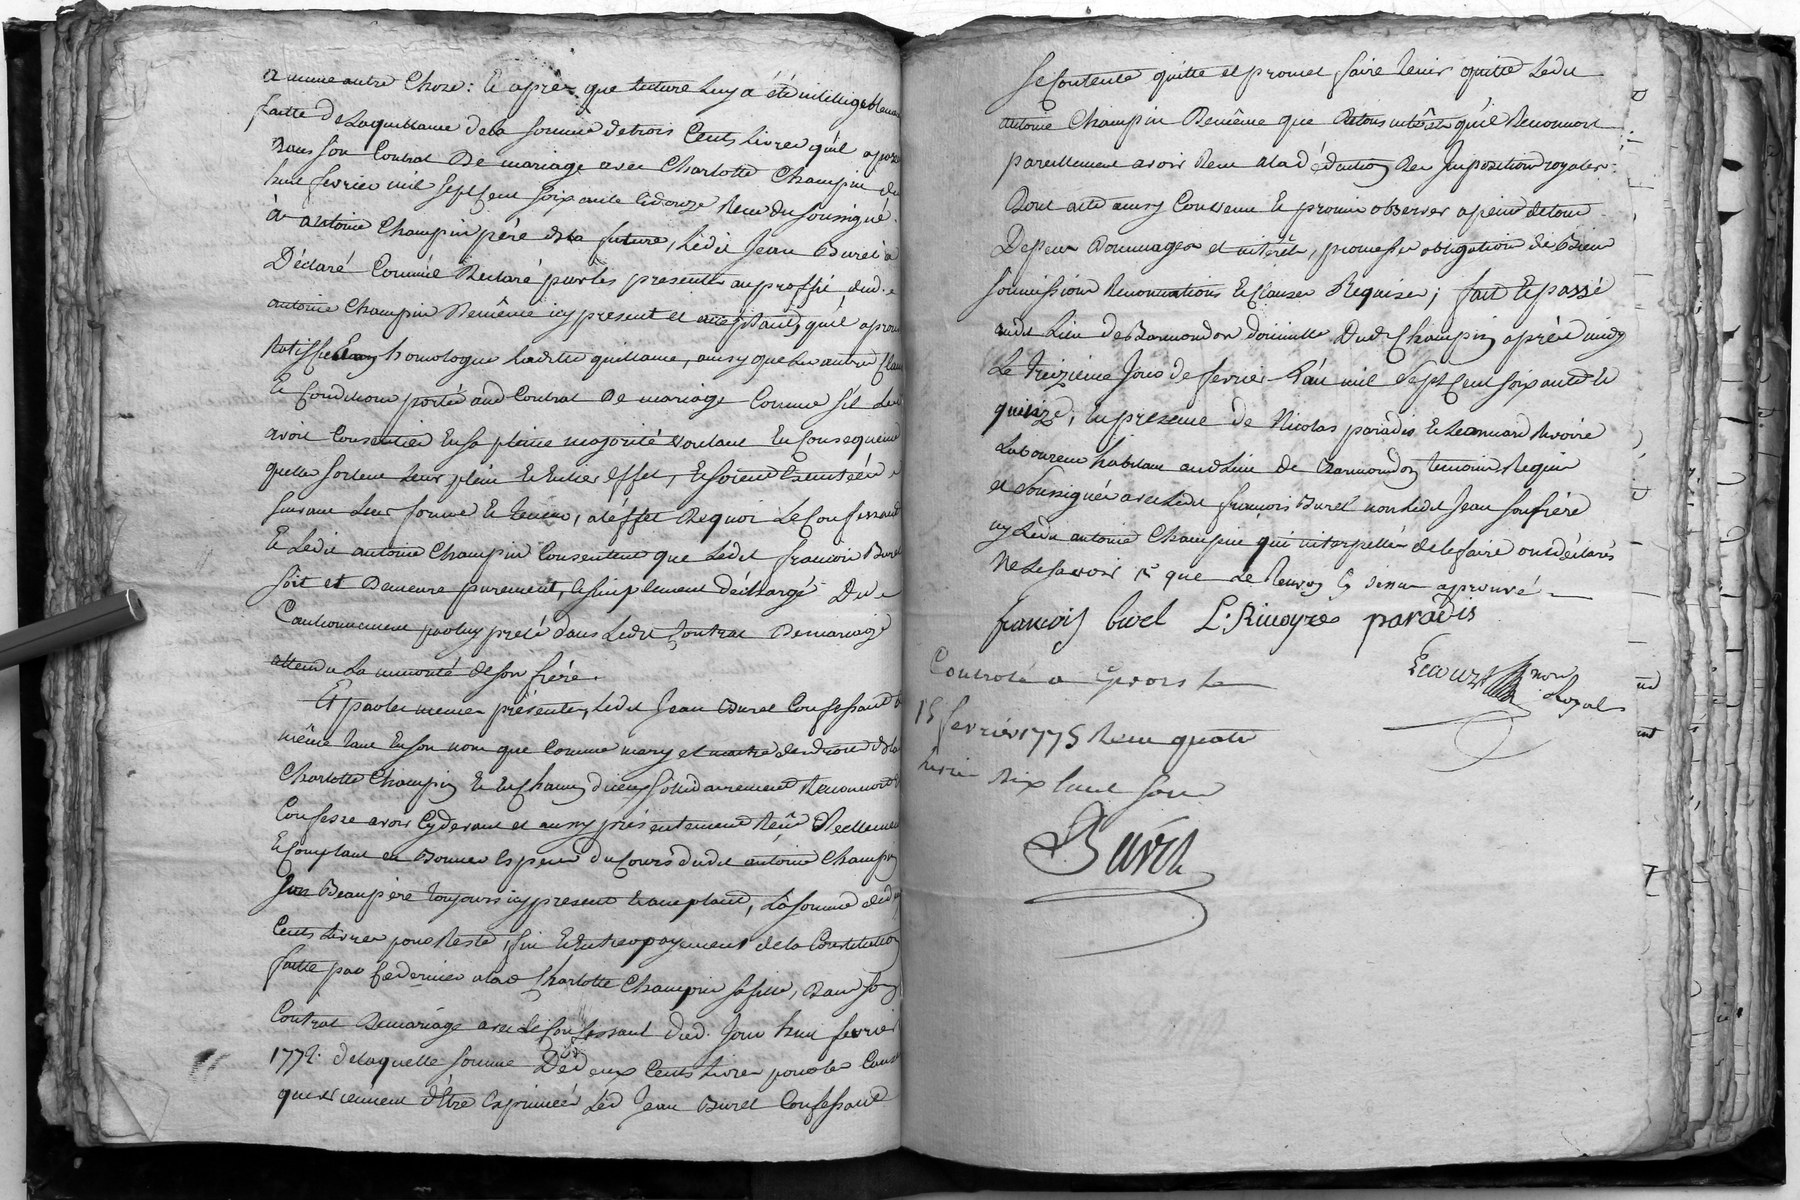 a aucune autre Chose: Et aprez que lecture luy a été intelligiblement
faitte de la quittance de la somme de trois Cents Livres qu'il a passé
Dans son Contrat De mariage avec Charlotte Champin du
huit fevrier mil sept Cent soixante et douze Recu du soussigné
à antoine Champin pére de la future, Ledit Jean Burel a
Déclaré Comme il Declaré par les presentes au proffit dud.
antoine Champin De même icy present et acceptant, qu'il aprouve
Ratiffie Et homologue Ladite quittance, ainsy que les autres Clauses
Et Conditions portés aud Contrat De mariage Comme s'il Les
avoit Consenties En sa pleine majorité voulant En Consequence
quelles sortent Leur plein Et Entier Effet, Et soient Executées
suivant Leur forme Et teneur, a l'éffet De quoi Le Confessant
Et Ledit antoine Champin Consentent que Ledit francois Burel
soit et Demeure purement, Et simplement déchargé Du
Cautionnement par luy preté dans Ledit Contrat De mariage
attendu La minorité de son frére.
Et par les memes présentes, Ledit Jean Burel Confessant
même tant En son nom que Comme mary et maitre des droits de la
Charlotte Champin Et En Chacun d'iceux solidairement Reconnoit
Confesse avoir Cy devant et aussy présentement Reçu Reellement
Et Comptant en Bonnes Especes du Cours dudit antoine Champin
son Beaupère toujours icy present Et acceptant, La somme de deux
Cents Livres pour Reste, fin Et Entier payement de la Constitution
faitte par ce dernier a lad Charlotte Champin sa fille, Dans son
Contrat De mariage avec Le Confessant dud. jour huit fevrier
1772. de laquelle somme De deux Cents Livres pour les Causes
qui viennent d'être Exprimées Led Jean Burel Confessant
se Contente quitte et promet faire tenir quitte Ledit
antoine Champin De même que De tous intérêts qu'il Reconnoit
pareillement avoir Recu a la déduction Des Impositions royales.
Dont acte ainsy Convenu Et promis observer a peine de tous
Depens Dommages et intérêts, promesse obligation de Biens
soumissions Renonciations Et Clauses Requises; fait Et passé
audit Lieu de Barmondon domicille Dud Champin après midy
Le treizieme jour de fevrier L'an mil Sept Cent soixante Et
quinze, En presence de Nicolas paradis Et Leonnard Rivoire
Laboureurs habitans aud Lieu de Barmondon temoins Requis
et soussignés avec Ledit francois Burel non Ledit Jean son frére
ny Ledit antoine Champin qui interpellés de le faire ont déclarés
Ne le savoir
françois burel L. Rivoyre paradis
Royal
Controlé a Givors le
15 fevrier 1775 Recu quatre
livres dix huit sous